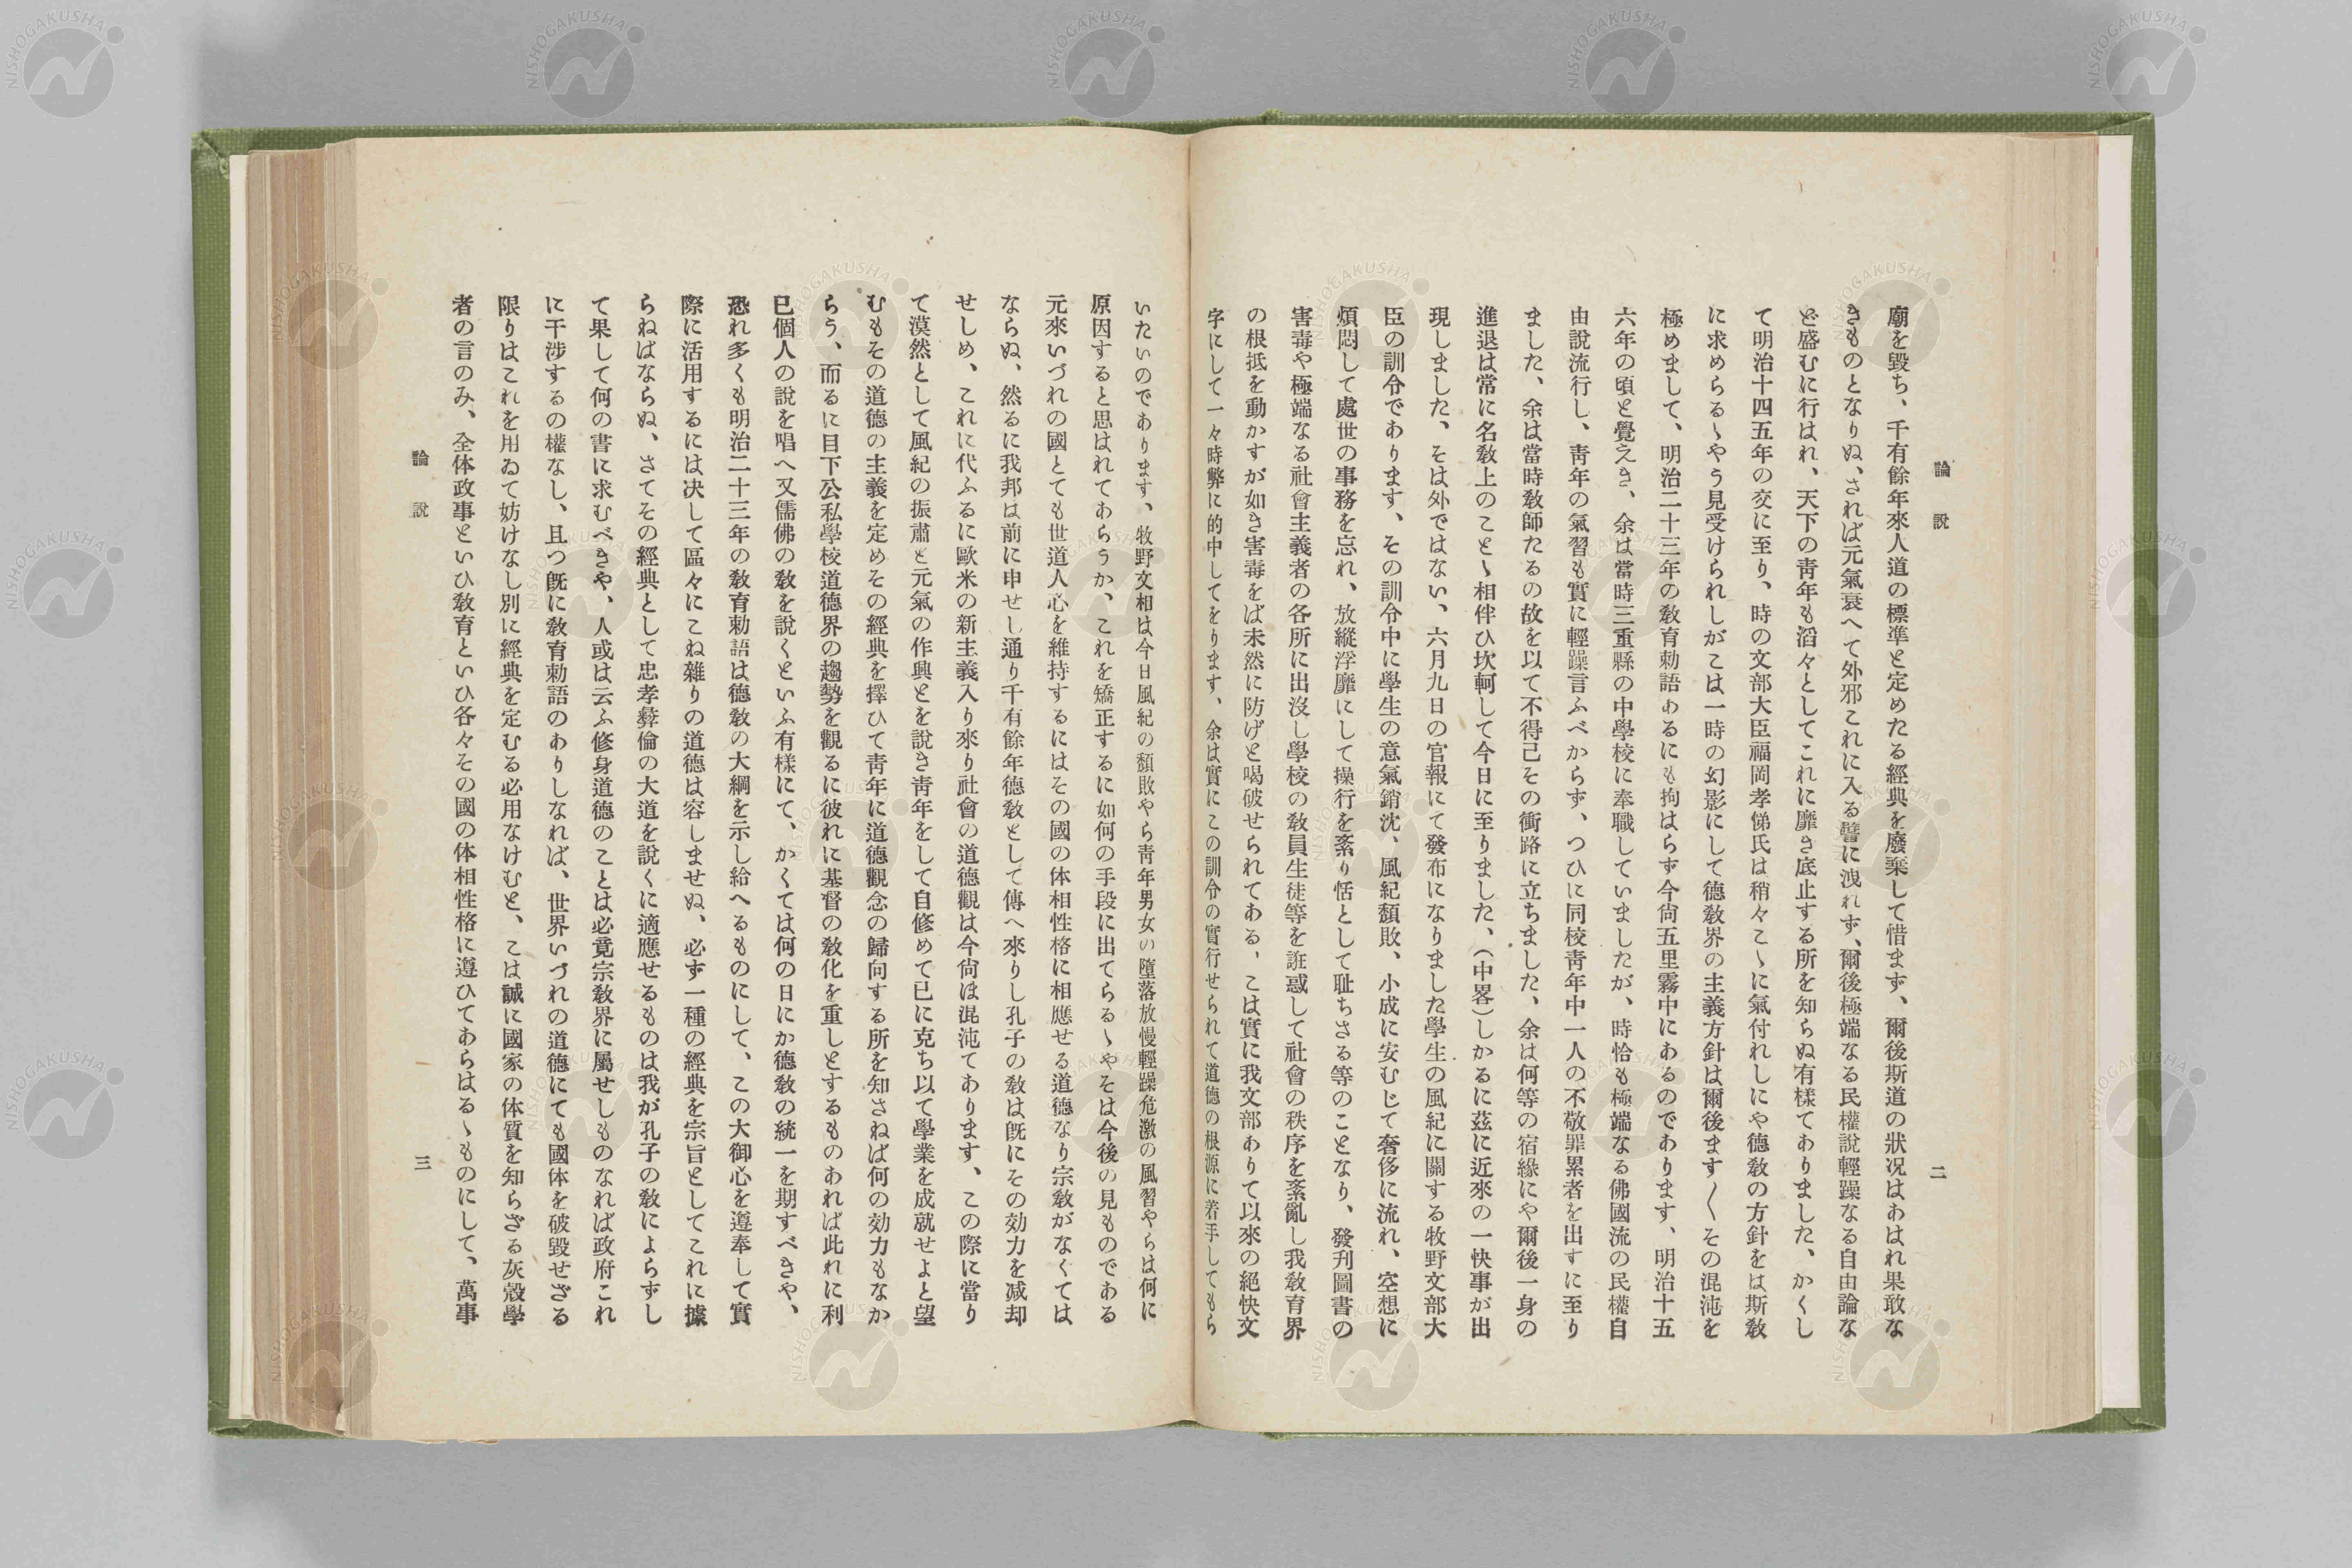 論說
二
廟を毀ち、千有餘年來人道の標準と定めたる經典を廢棄して惜まず、爾後斯道の狀况はあはれ果敢な
きものとなりぬ、されば元氣衰へて外邪これに入る譬に洩れず、爾後極端なる民權說輕躁なる自由論な
ど盛むに行はれ、天下の靑年も滔々としてこれに靡き底止する所を知らぬ有樣てありました、かくし
て明治十四五年の交に至り、時の文部大臣福岡孝悌氏は稍々こゝに氣付れしにや德敎の方針をは斯敎
に求めらるゝやう見受けられしがこは一時の幻影にして德敎界の主義方針は爾後ます〱その混沌を
極めまして、明治二十三年の敎育勅語あるにも拘はらず今尙五里霧中にあるのであります、明治十五
六年の頃と覺えき、余は當時三重縣の中學校に奉職していましたが、時恰も極端なる佛國流の民權自
由說流行し、靑年の氣習も實に輕躁言ふべからず、つひに同校靑年中一人の不敬罪累者を出すに至り
ました、余は當時敎師たるの故を以て不得己その衝路に立ちました、余は何等の宿緣にや爾後一身の
進退は常に名敎上のことゝ相伴ひ坎軻して今日に至りました、(中畧)しかるに茲に近來の一快事が出
現しました、そは外ではない、六月九日の官報にて發布になりました學生の風紀に關する牧野文部大
臣の訓令であります、その訓令中に學生の意氣銷沈、風紀頽敗、小成に安むじて奢侈に流れ、空想に
煩悶して處世の事務を忘れ、放縱浮靡にして操行を紊り恬として耻ちさる等のことなり、發刊圖書の
害毒や極端なる社會主義者の各所に出沒し學校の敎員生徒等を誑惑して社會の秩序を紊亂し我敎育界
の根抵を動かすが如き害毒をば未然に防げと喝破せられてある、こは實に我文部ありて以來の絕快文
字にして一々時弊に的中してをります、余は實にこの訓令の實行せられて道德の根源に着手してもら
いたいのであります、牧野文相は今日風紀の頽敗やら靑年男女の墮落放慢輕躁危激の風習やらは何に
原因すると思はれてあらうか、これを矯正するに如何の手段に出てらるゝやそは今後の見ものである
元來いづれの國とても世道人心を維持するにはその國の体相性格に相應せる道德なり宗敎がなくては
ならぬ、然るに我邦は前に申せし通り千有餘年德敎として傳へ來りし孔子の敎は旣にその効力を减却
せしめ、これに代ふるに歐米の新主義入り來り社會の道德觀は今尙ほ混沌てあります、この際に當り
て漠然として風紀の振肅と元氣の作興とを說き靑年をして自修めて已に克ち以て學業を成就せよと望
むもその道德の主義を定めその經典を擇ひて靑年に道德觀念の歸向する所を知さねば何の効力もなか
らう、而るに目下公私學校道德界の趨勢を觀るに彼れに基督の敎化を重しとするものあれば此れに利
已個人の說を唱へ又儒佛の敎を說くといふ有樣にて、かくては何の日にか德敎の統一を期すべきや、
恐れ多くも明治二十三年の敎育勅語は德敎の大綱を示し給へるものにして、この大御心を遵奉して實
際に活用するには决して區々にこね雜りの道德は容しませぬ、必ず一種の經典を宗旨としてこれに據
らねばならぬ、さてその經典として忠孝彜倫の大道を說くに適應せるものは我が孔子の敎によらずし
て果して何の書に求むべきや、人或は云ふ修身道德のことは必竟宗敎界に屬せしものなれば政府これ
に干涉するの權なし、且つ旣に敎育勅語のありしなれば、世界いづれの道德にても國体を破毀せざる
限りはこれを用ゐて妨けなし別に經典を定むる必用なけむと、こは誠に國家の体質を知らざる灰殼學
者の言のみ、全体政事といひ敎育といひ各々その國の体相性格に遵ひてあらはるゝものにして、萬事
論說
三
NISHOGAKUSHA